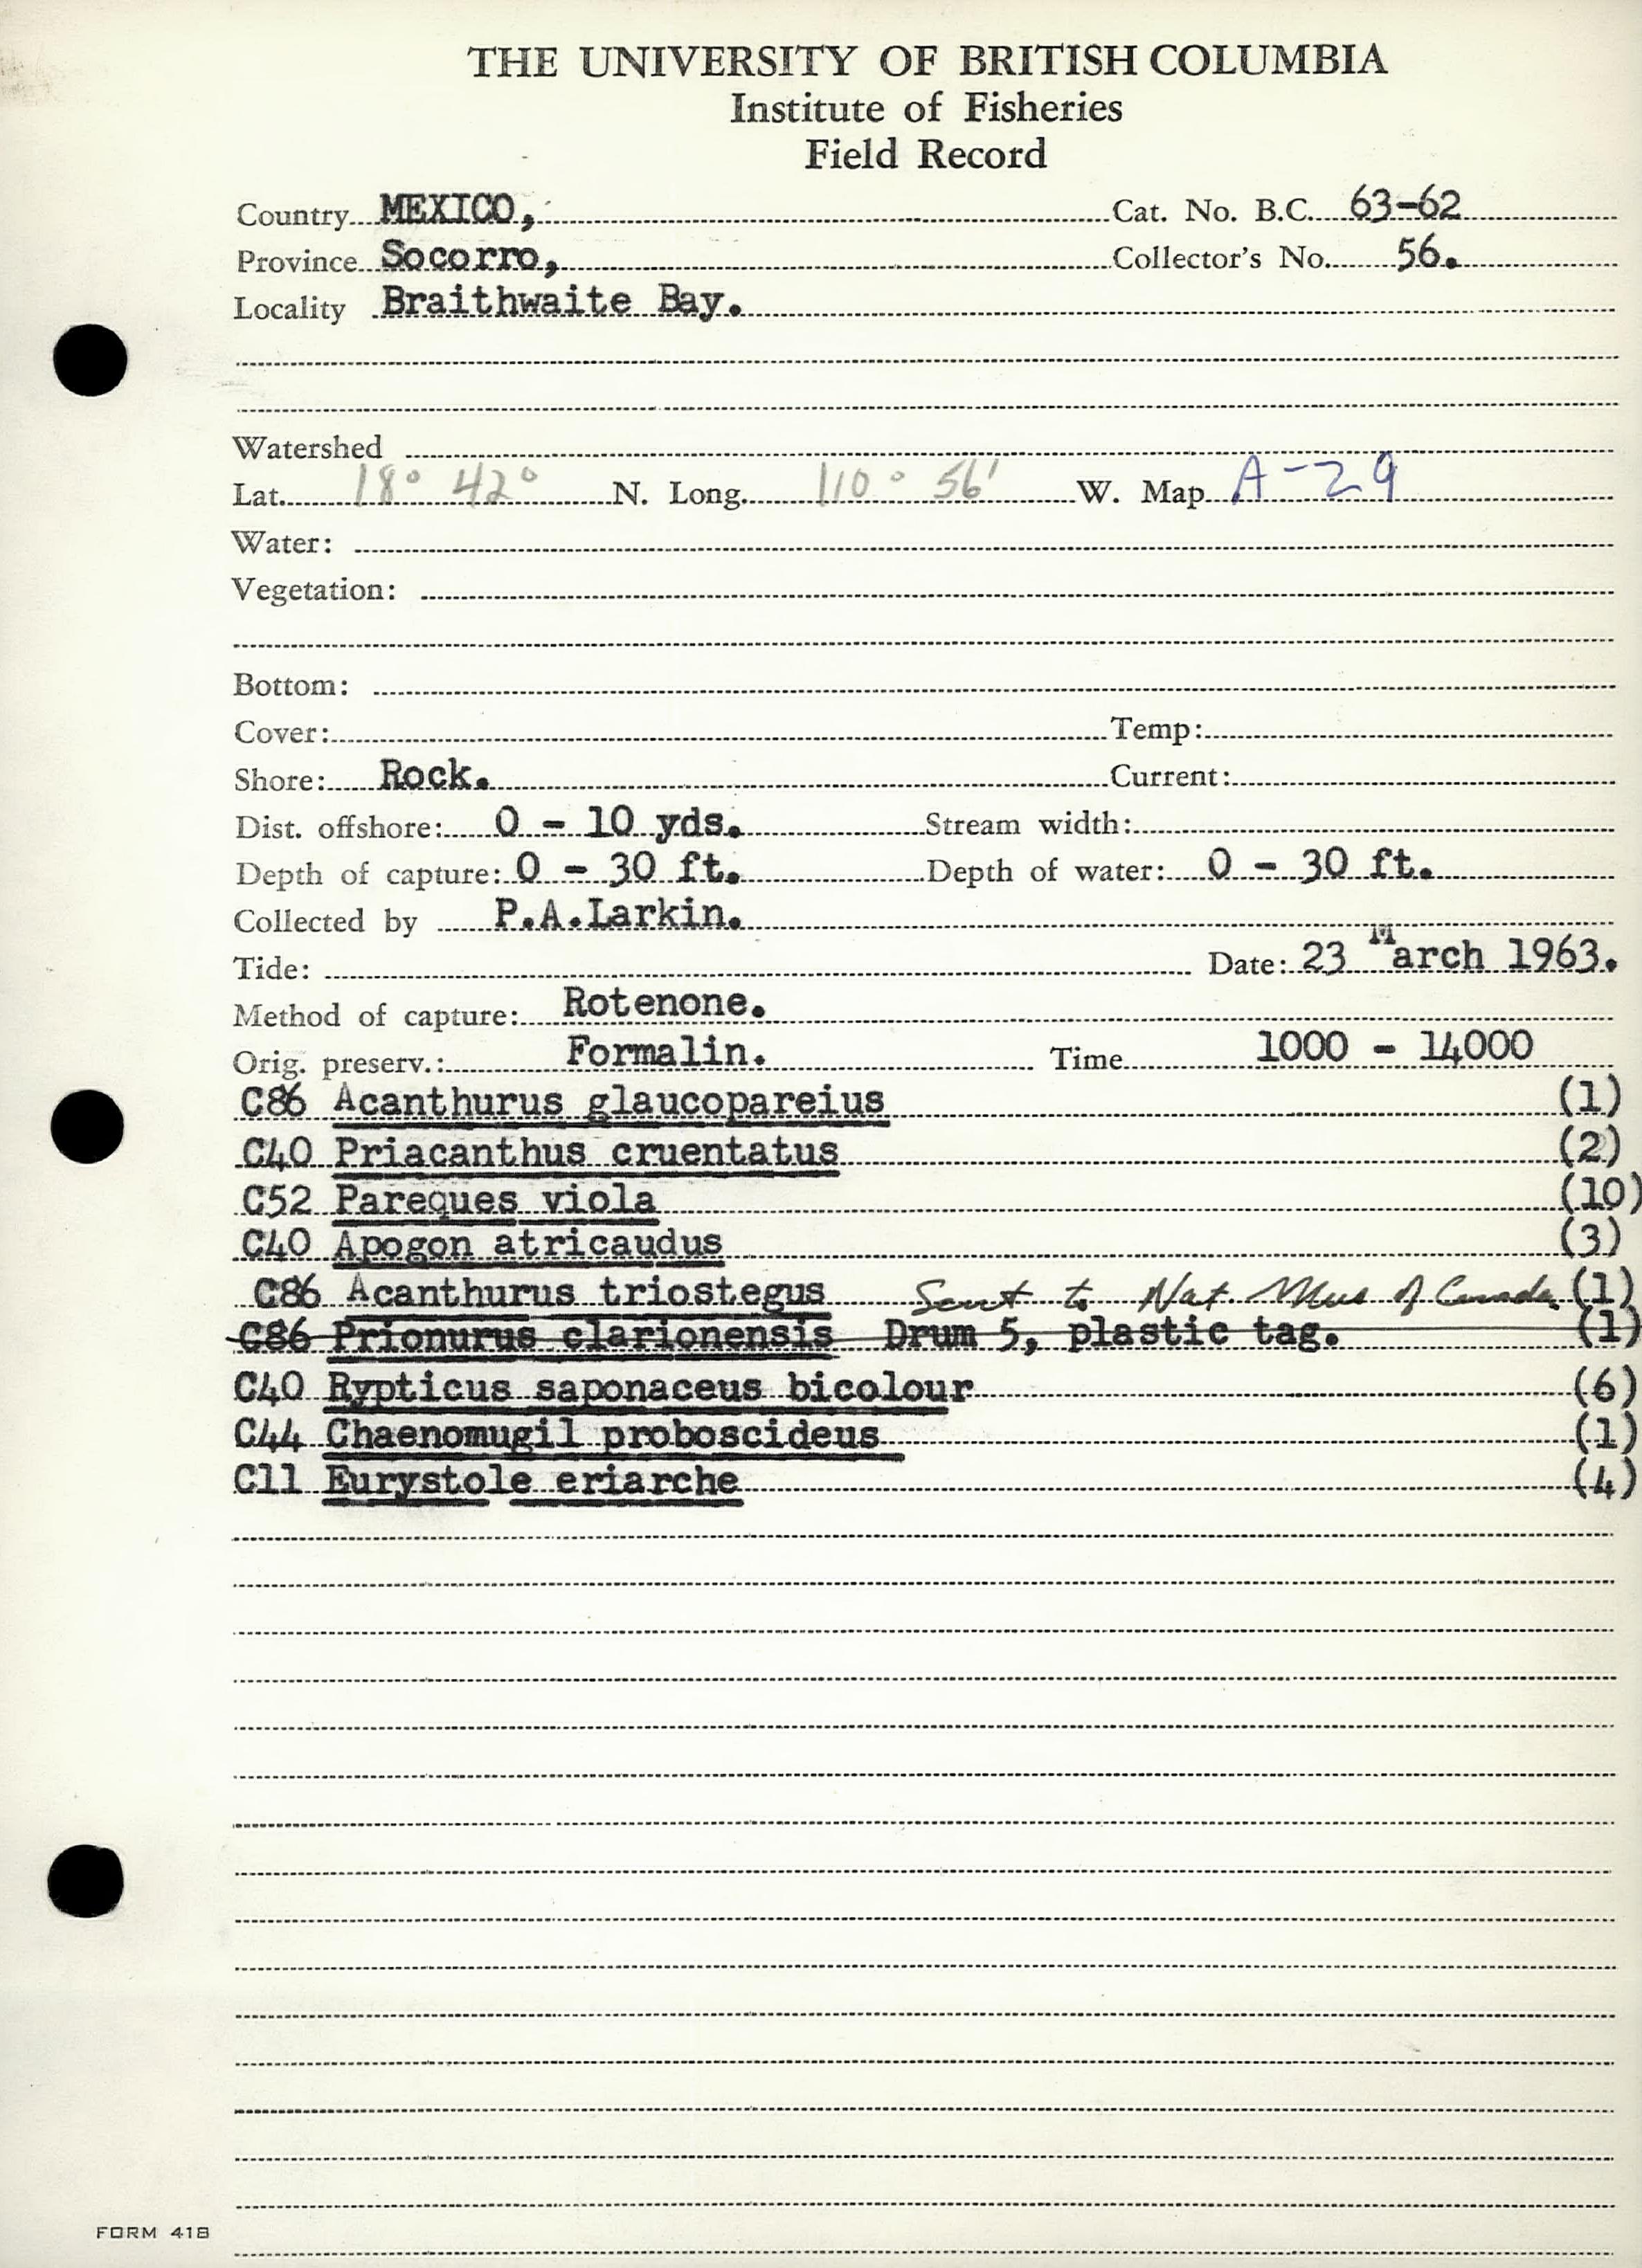 THE UNIVERSITY OF BRITISH COLUMBIA
Institute of Fisheries
Field Record
Country MEXICO, Cat. No. B.C. 63-62
Province Socorro, Collector's No. 56.
Locality Braithwaite Bay.
Watershed
Lat. 18° 42° N. Long. 110° 56' W. Map A-29
Water:
Vegetation:
Bottom:
Cover: Temp:
Shore: Rock. Current:
Dist. offshore: 0 - 10 yds. Stream width:
Depth of capture: 0 - 30 ft. Depth of water: 0 - 30 ft.
Collected by P.A.Larkin.
Tide: Date: 23 March 1963.
Method of capture: Rotenone.
Orig. preserv.: Formalin. Time 1000 - 14000
C86 Acanthurus glaucopareius (1)
C40 Priacanthus cruentatus (2)
C52 Pareques viola (10)
C40 Apogon atricaudus (3)
C86 Acanthurus triostegus Sent to Nat Mus of Canada (1)
C86 Prionurus clarionensis Drum 5, plastic tag. (1)
C40 Rypticus saponaceus bicolour (6)
C44 Chaenomugil proboscideus (1)
C11 Eurystole eriarche (4)
FORM 418